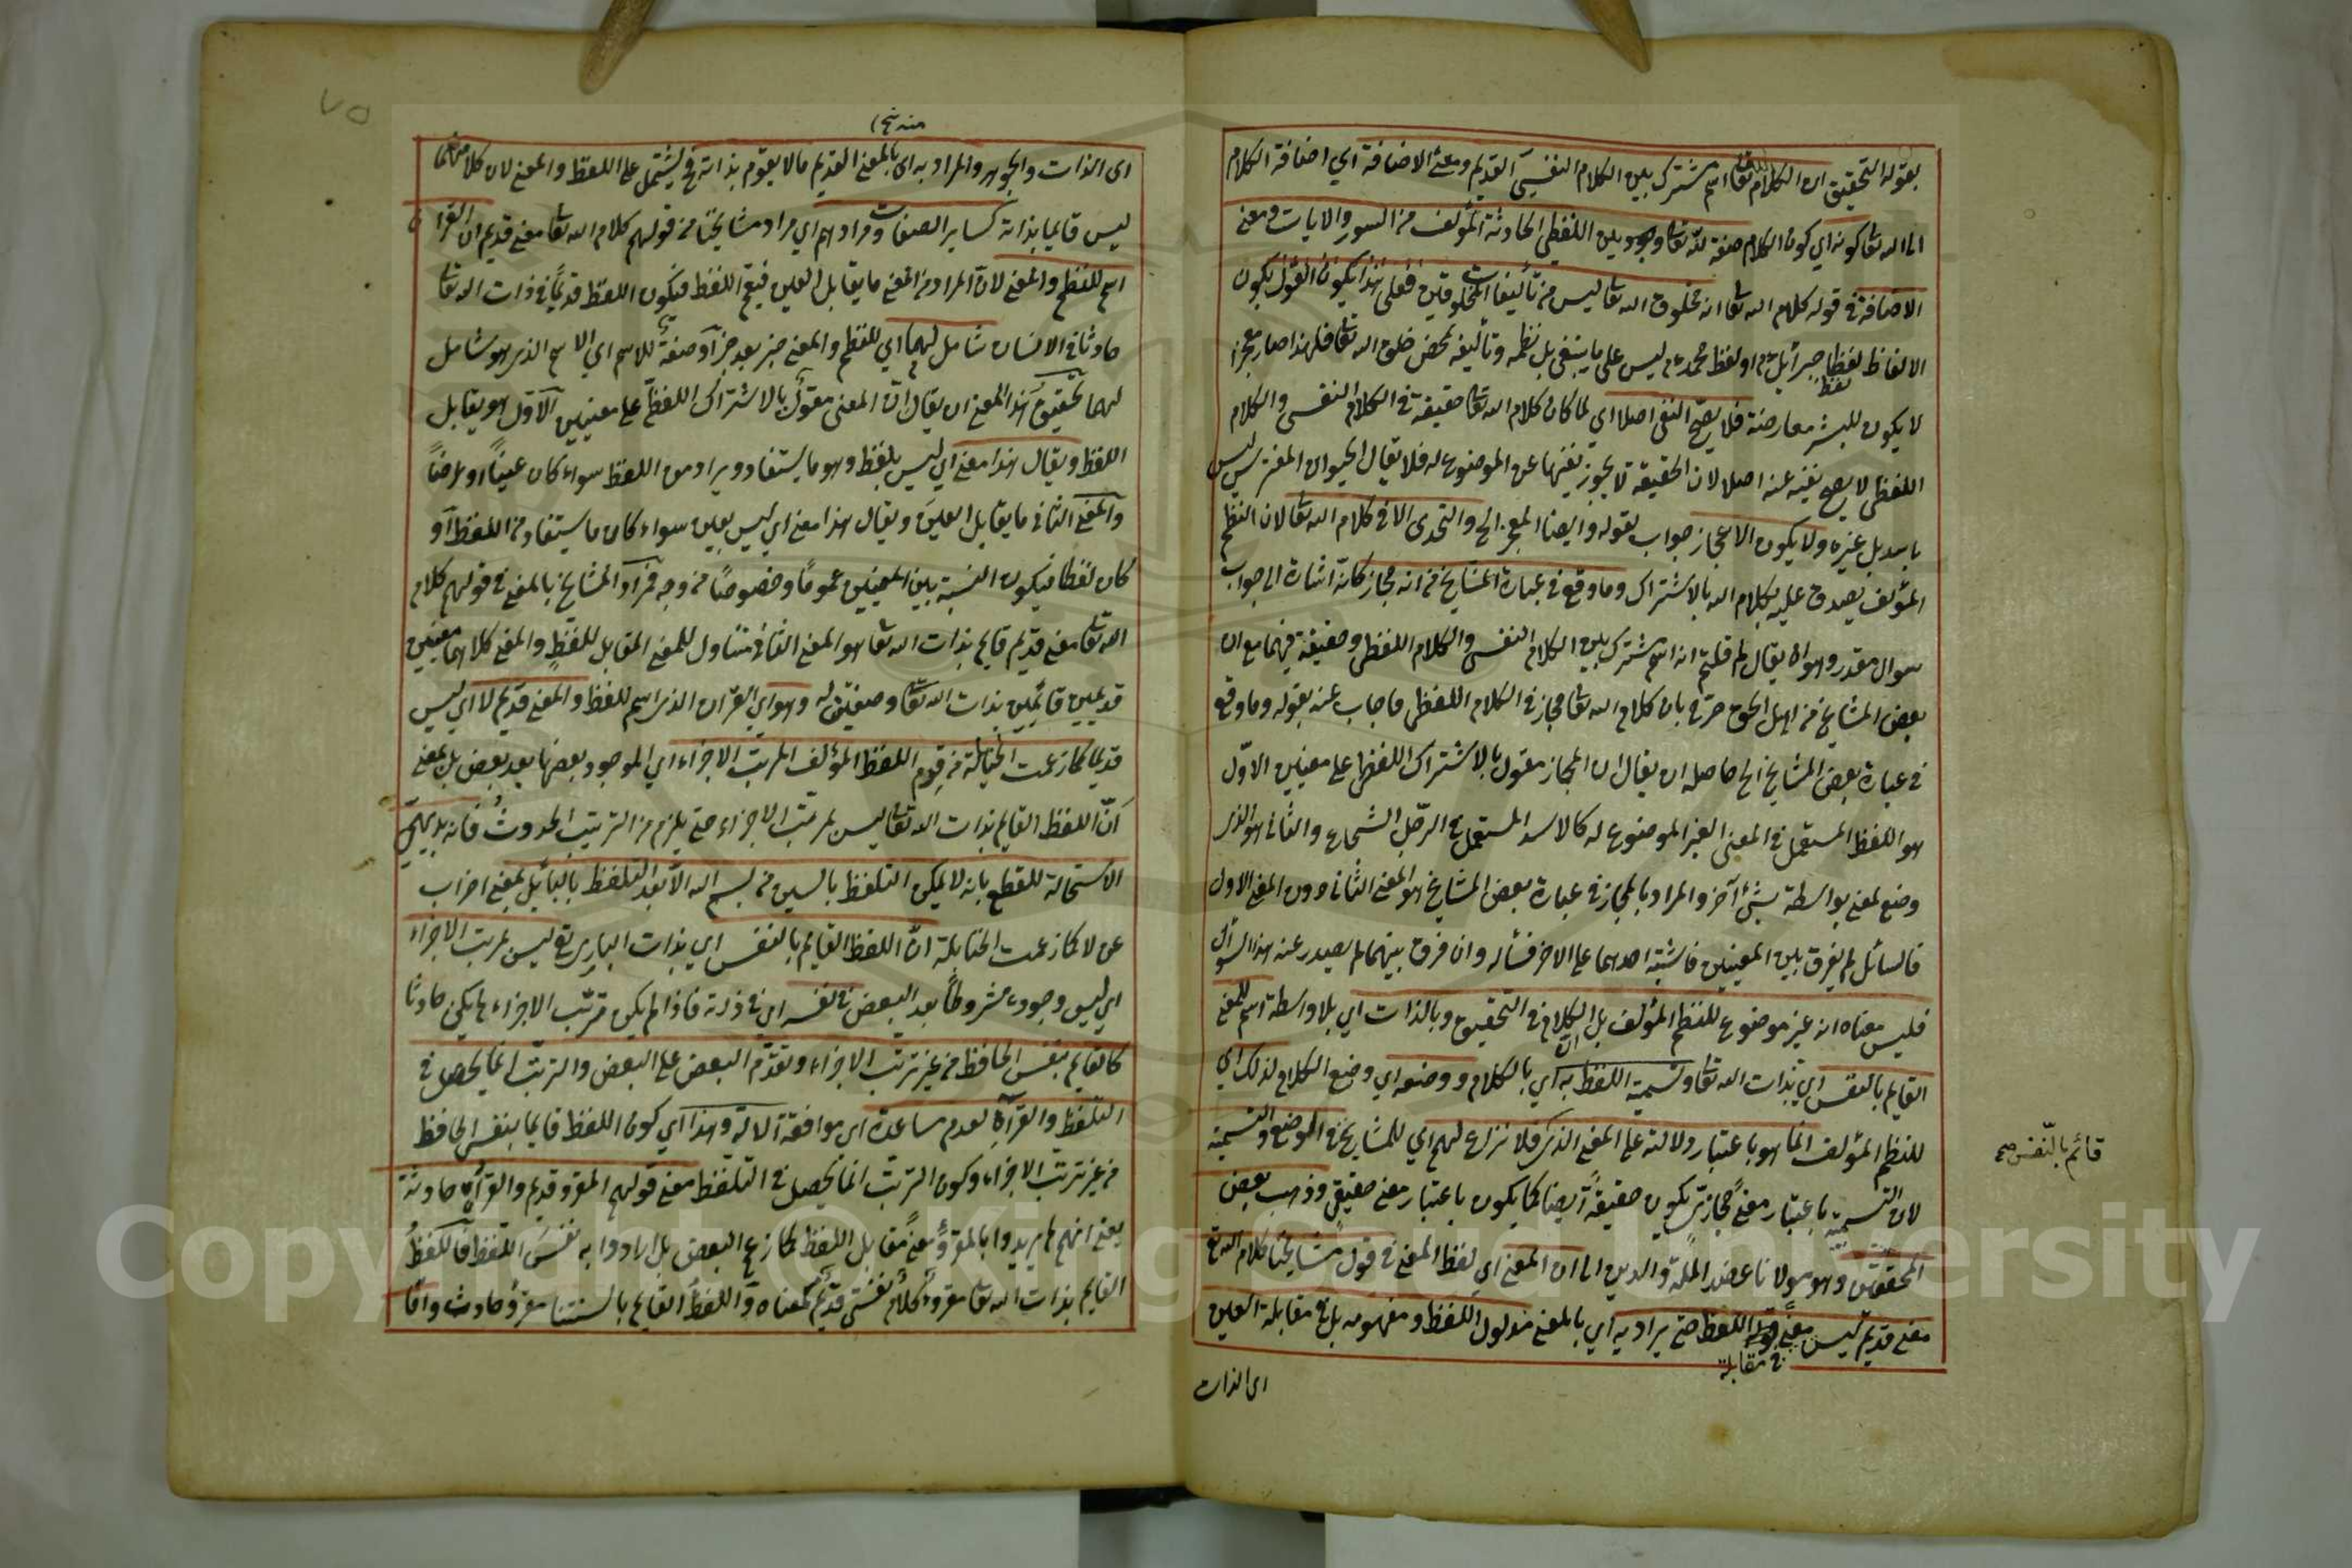 بقوله التحقيق ان كلام الله تعا اسم مشترك بين الكلام النفسي القديم ومعنى الاضافة اي اضافة الكلام
الى الله تعا كونه اي كون الكلام صفة لله تعا وبين اللفظي الحادث المؤلف من السور والايات ومعنى
الاضافة في قوله كلام الله تعا انه مخلوق الله تعا ليس من تأليفات المخلوقين فعلى هذا يكون القول بكون
الالفاظ لفظ جبرائيل ع م او لفظ محمد ع م ليس على ما ينبغي بل نظمه وتأليفه بمحض خلق الله تعا فلهذا صار معجزا
لا يكون للبشر معارضته فلا يصح النفي اصلا اي لما كان كلام الله تعا حقيقة في الكلام النفسي والكلام
اللفظي لا يصح نفيه عنه اصلا لان الحقيقة لا يجوز نفيها عن الموضوع له فلا يقال الحيوان المفترس ليس
باسد بل غيره ولا يكون الاعجاز جواب بقوله وايضا المعجز الخ والتحدى الا في كلام الله تعا لان النظم
المؤلف يصدق عليه كلام الله بالاشتراك وما وقع في عبارة المشايخ من انه مجاز كانه اشارة الى جواب
سوال مقدر وهو ان يقال لم قلتم انه اسم مشترك بين الكلام النفسي والكلام اللفظي وحقيقة فيهما مع ان
بعض المشايخ من اهل الحق صرح بان كلام الله تعا مجاز في الكلام اللفظي فاجاب عنه بقوله وما وقع
في عبارة بعض المشايخ الخ حاصله ان يقال ان المجاز مقول بالاشتراك اللفظي على معنيين الاول
هو اللفظ المستعمل في المعنى الغير الموضوع له كالاسد المستعمل في الرجل الشجاع والثاني هو الذي
وضع لمعنى بواسطة شئ آخر والمراد بالمجاز في عبارة بعض المشايخ هو المعنى الثاني دون المعنى الاول
فالسائل لم يفرق بين المعنيين فاشتبه احدهما على الاخر فسأله وان فرق بينهما لم يصدر عنه هذا السؤال
فليس معناه انه غير موضوع للنظم المؤلف بل ان الكلام في التحقيق وبالذات اي بلا واسطة اسم للمعنى
القايم بالنفس اي بذات الله تعا وتسمية اللفظ به اي بالكلام ووضعه اي وضع الكلام لذلك اي
للنظم المؤلف انما هو باعتبار دلالته على المعنى الذي فلا نزاع لهم اي للمشايخ في الوضع والتسمية
قائم بالنفس صح
لان التسمية باعتبار معنى مجازي يكون حقيقة ايضا كما يكون باعتبار معنى حقيقي وذهب بعض
المحققين وهو مولانا عضد الملة والدين الى ان المعنى اي لفظ المعنى في قول مشايخنا كلام الله تع
معنى قديم ليس معنى في مقابلة اللفظ حتى يراد به اي بالمعنى مدلول اللفظ ومفهومه بل في مقابلة العين
اى الذات
٧٥
اى الذات والجوهر والمراد به اى بالمعنى القديم مالا يقوم بذاته فيشتمل على اللفظ والمعنى لان كلا منهما
ليس قايما بذاته كساير الصفات ومرادهم اي مراد مشايخنا من قولهم كلام الله تعا معنى قديم ان القران
اسم للنظم والمعنى لان المراد من المعنى ما يقابل العين فيعم اللفظ فيكون اللفظ قديما في ذات الله تعا
حادثا في الانسان شامل لهما اي للنظم والمعنى خبر بعد خبر او صفة للاسم اي الاسم الذي هو شامل
لهما تحقيق هذا المعنى ان يقال ان المعنى مقول بالاشتراك اللفظي على معنيين الاول هو يقابل
اللفظ ويقال هذا معنى اي ليس بلفظ وهو ما يستفاد ويراد من اللفظ سواء كان عينا او عرضا
والمعنى الثاني ما يقابل العين ويقال هذا معنى اي ليس بعين سواء كان ما يستفاد من اللفظ او
كان لفظا فيكون النسبة بين المعنيين عموما وخصوصا من وجه فمراد المشايخ بالمعنى في قولهم كلام
الله تعا معنى قديم قايم بذات الله تعا هو المعنى الثاني متناول للمعنى المقابل للفظ والمعنى كلاهما معنيين
قديمين قائمين بذات الله تعا وصفتين له وهو اي القران الذي اسم للفظ والمعنى قديم لا اي ليس
قديما كما زعمت الحنابلة من قدم اللفظ المؤلف المرتب الاجزاء اي الموجود بعضها بعد بعض بل بمعنى
ان اللفظ القايم بذات الله تعا ليس بمرتب الاجزاء حتى يلزم من الترتيب الحدوث فانه بديهي
الاستحالة للقطع بانه لا يمكن التلفظ بالسين من بسم الله الا بعد التلفظ بالباء بل بمعنى اضراب
عن لا كما زعمت الحنابلة ان اللفظ القايم بالنفس اي بذات الباري تع ليس بمرتب الاجزاء
اي ليس وجوده مشروطا بعد البعض في نفسه اى في ذاته فاذا لم يكن مترتب الاجزاء لم يكن حادثا
كالقايم بنفس الحافظ من غير ترتب الاجزاء وتقدم البعض على البعض والترتب انما يحصل في
التلفظ والقراءة لعدم مساعدة اي موافقة الالة وهذا اي كون اللفظ قايما بنفس الحافظ
من غير ترتب الاجزاء وكون الترتب انما يحصل في التلفظ معنى قولهم المقرو قديم والقراءة حادثة
يعنى انهم لم يريدوا بالمقرو معنى مقابل اللفظ كما زعم البعض بل ارادوا به نفس اللفظ فاللفظ
القايم بذات الله تعا مقرو وكلام نفسي قديم كمعناه واللفظ القايم بالسنتنا مقرؤ حادث واما